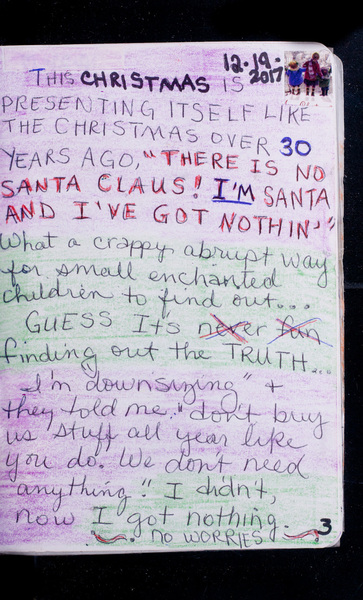 12.19.2017
THIS CHRISTMAS IS
PRESENTING ITSELF LIKE
THE CHRISTMAS OVER 30
YEARS AGO, "THERE IS NO
SANTA CLAUS! I'M SANTA
AND I'VE GOT NOTHIN'"
What a crappy abrupt way
for small enchanted
children to find out...
GUESS It's never fun
finding out the TRUTH...
I'm downsizing" +
they told me "don't buy
us stuff all year like
you do. We don't need
anything!" I didn't,
now I got nothing.
NO WORRIES
3